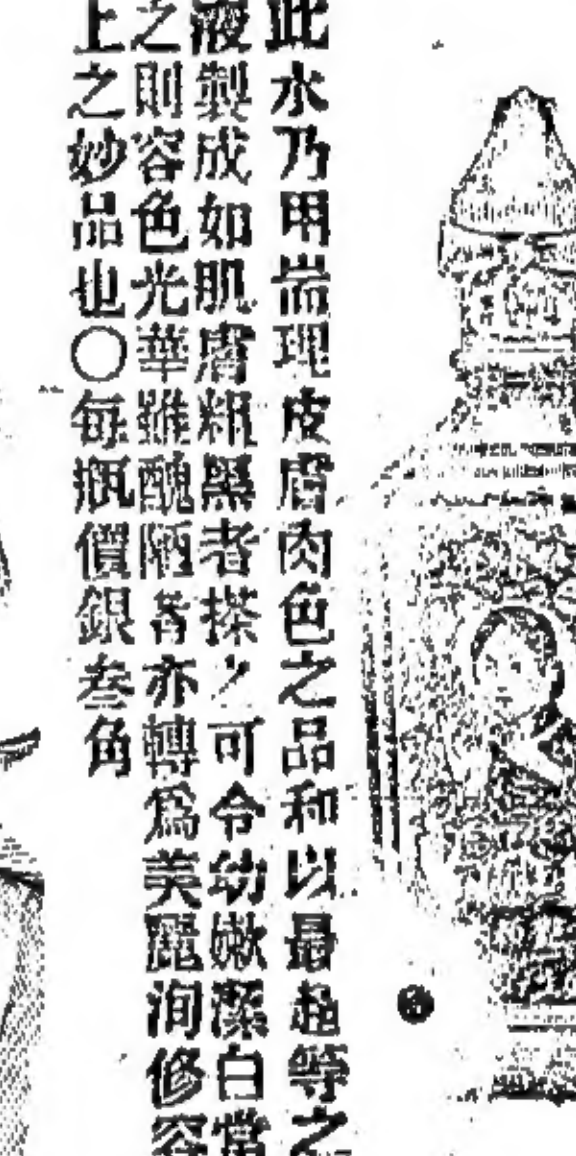 此水乃用耑理皮膚肉色之品和以最超等之
液製成如肌膚粗黑者搽之可令幼嫩潔白當
之則容色光華雖醜陋者亦轉為美麗洵修容
上之妙品也〇每瓶價銀叁角